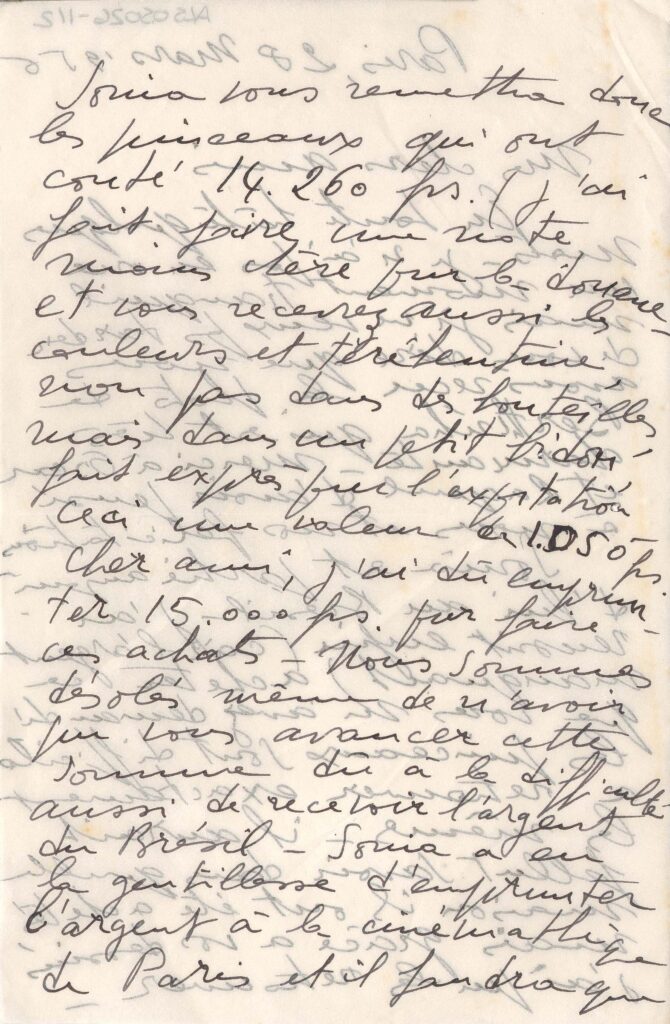 Sonia vous remettra donc
les pinceaux qui ont
couté 14.260 frs. (j'ai
fait faire une note
moins chère pur la douane -
et vous recevrez aussi les
couleurs et térébentine,
non pas dans des bouteilles
mais dans un petit bidon
fait exprès pur l'exportation
ceci une valeur de 1.050 frs.
Cher ami, j'ai dû emprun-
ter 15.000 frs. pur faire
ces achats - Nous sommes
désolés même de n'avoir
pu vous avancer cette
somme dû à la difficulté
aussi de recevoir l'argent
du Brésil - Sonia a eu
la gentillesse d'emprunter
l'argent à la cinémathèque
de Paris et il faudra que